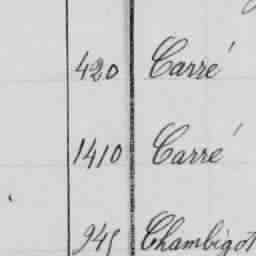 420 Carré
1410 Carré
945 Chambigot